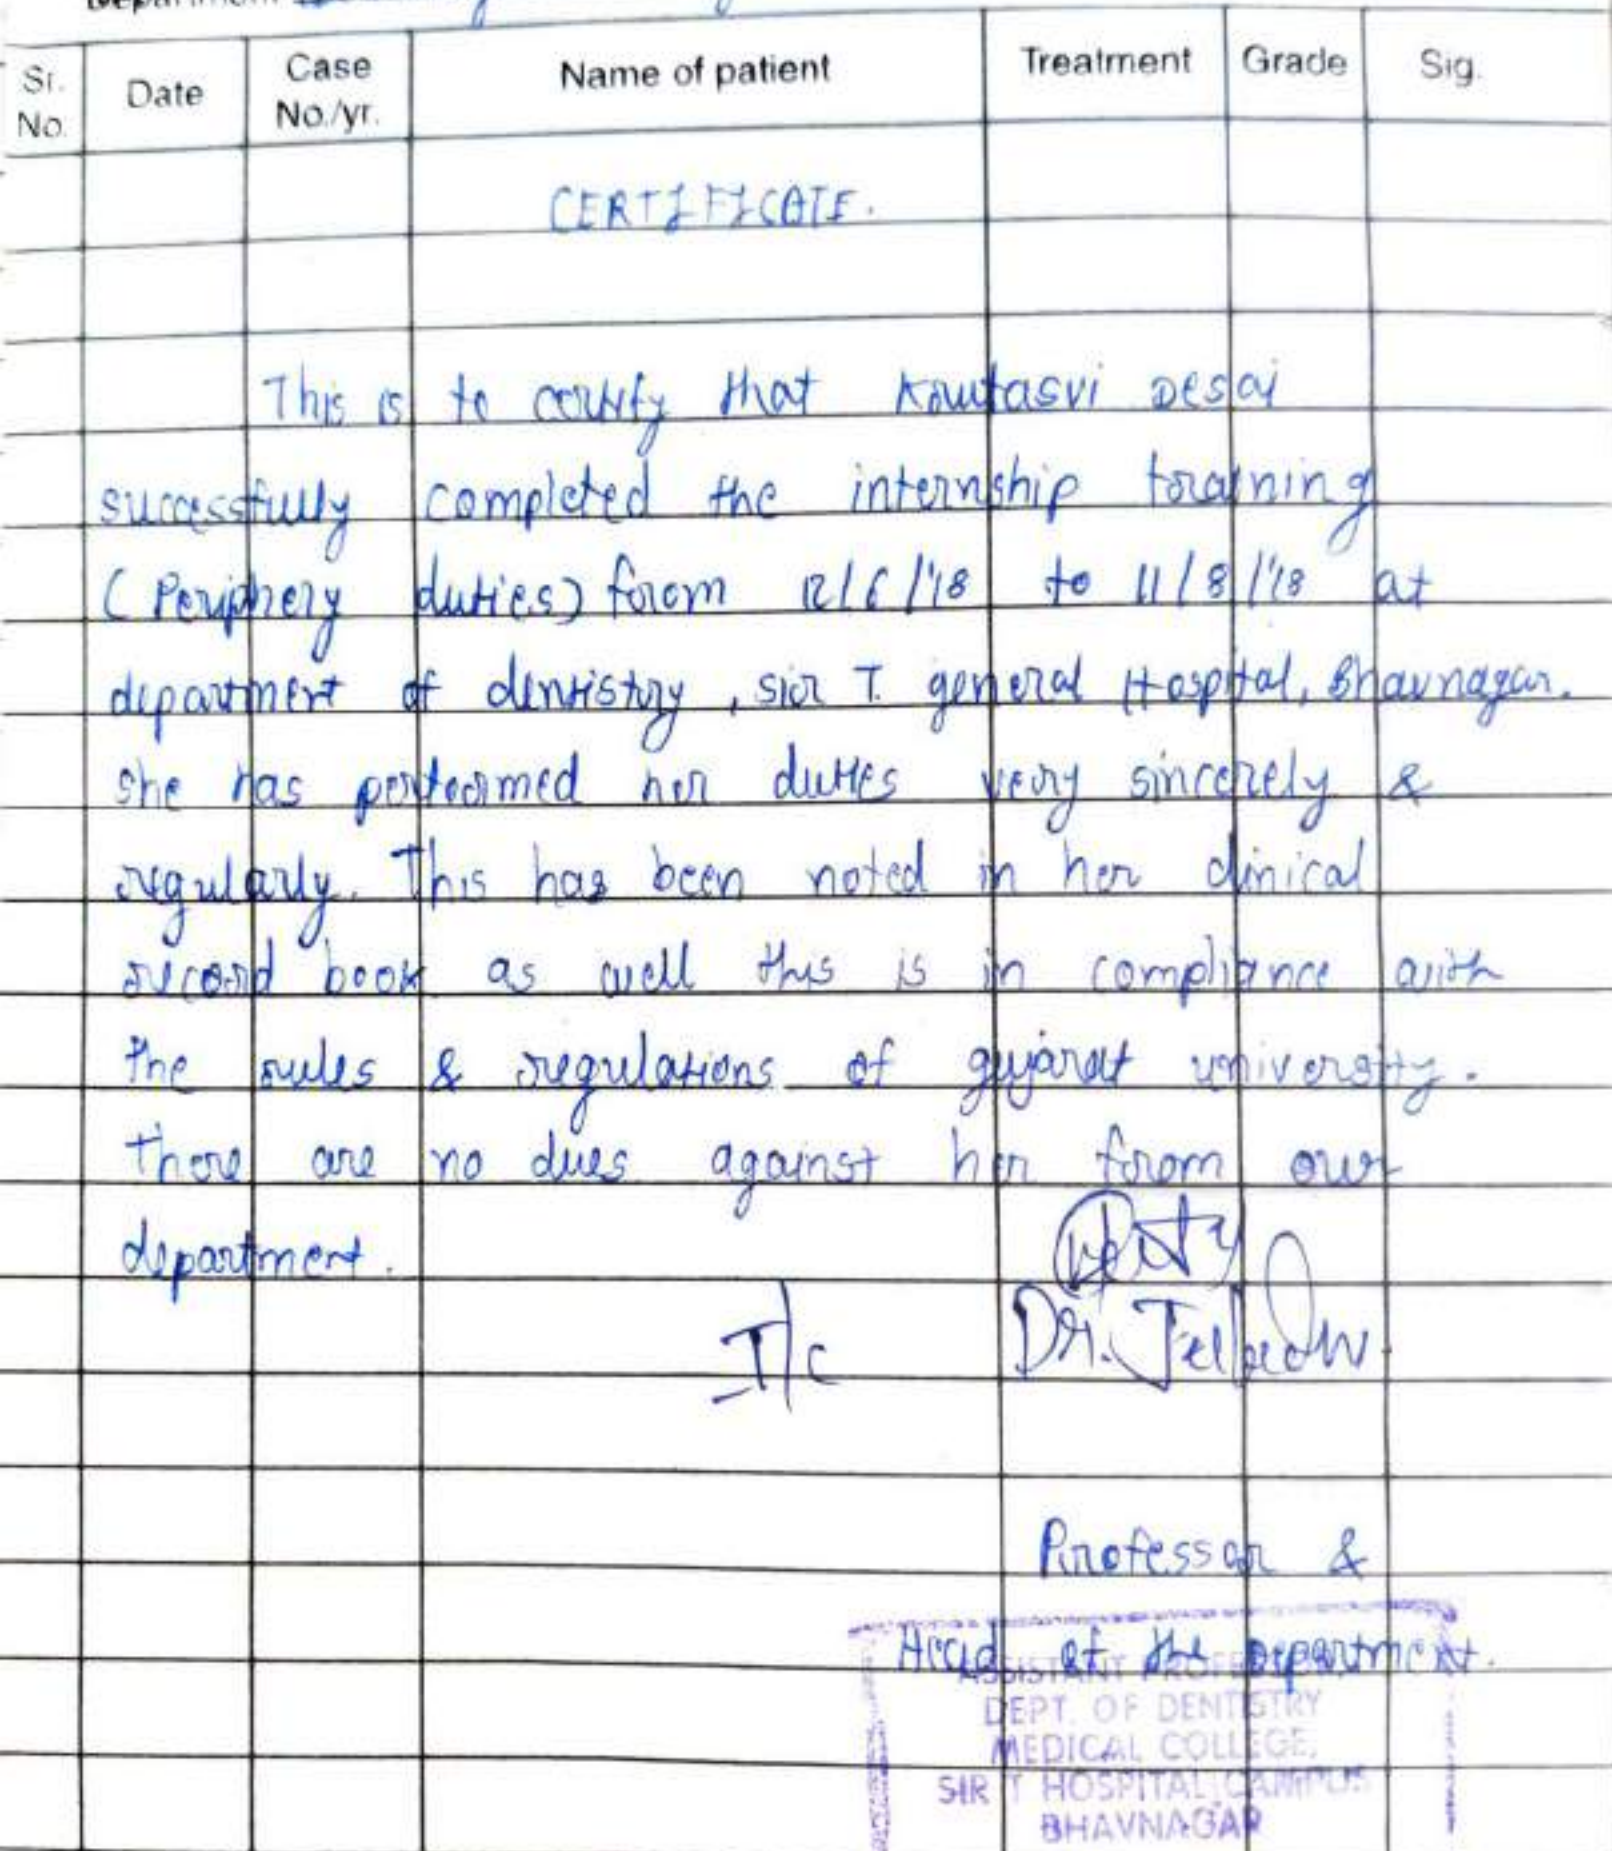 Department
Sr. No. Date Case No./yr. Name of patient Treatment Grade Sig.
CERTIFICATE.
This is to certify that Desai
successfully completed the internship training
(Periphery duties) from 12/6/'18 to 11/8/'18 at
department of dentistry, sir T. general Hospital, Bhavnagar.
She has performed her duties very sincerely &
regularly. This has been noted in her clinical
record book as well this is in compliance with
the rules & regulations of gujarat university.
There are no dues against her from our
department.
I/c Dr.
Professor &
Head of the Department.
ASSISTANT PROFESSOR,
DEPT. OF DENTISTRY
MEDICAL COLLEGE,
SIR T HOSPITAL CAMPUS
BHAVNAGAR